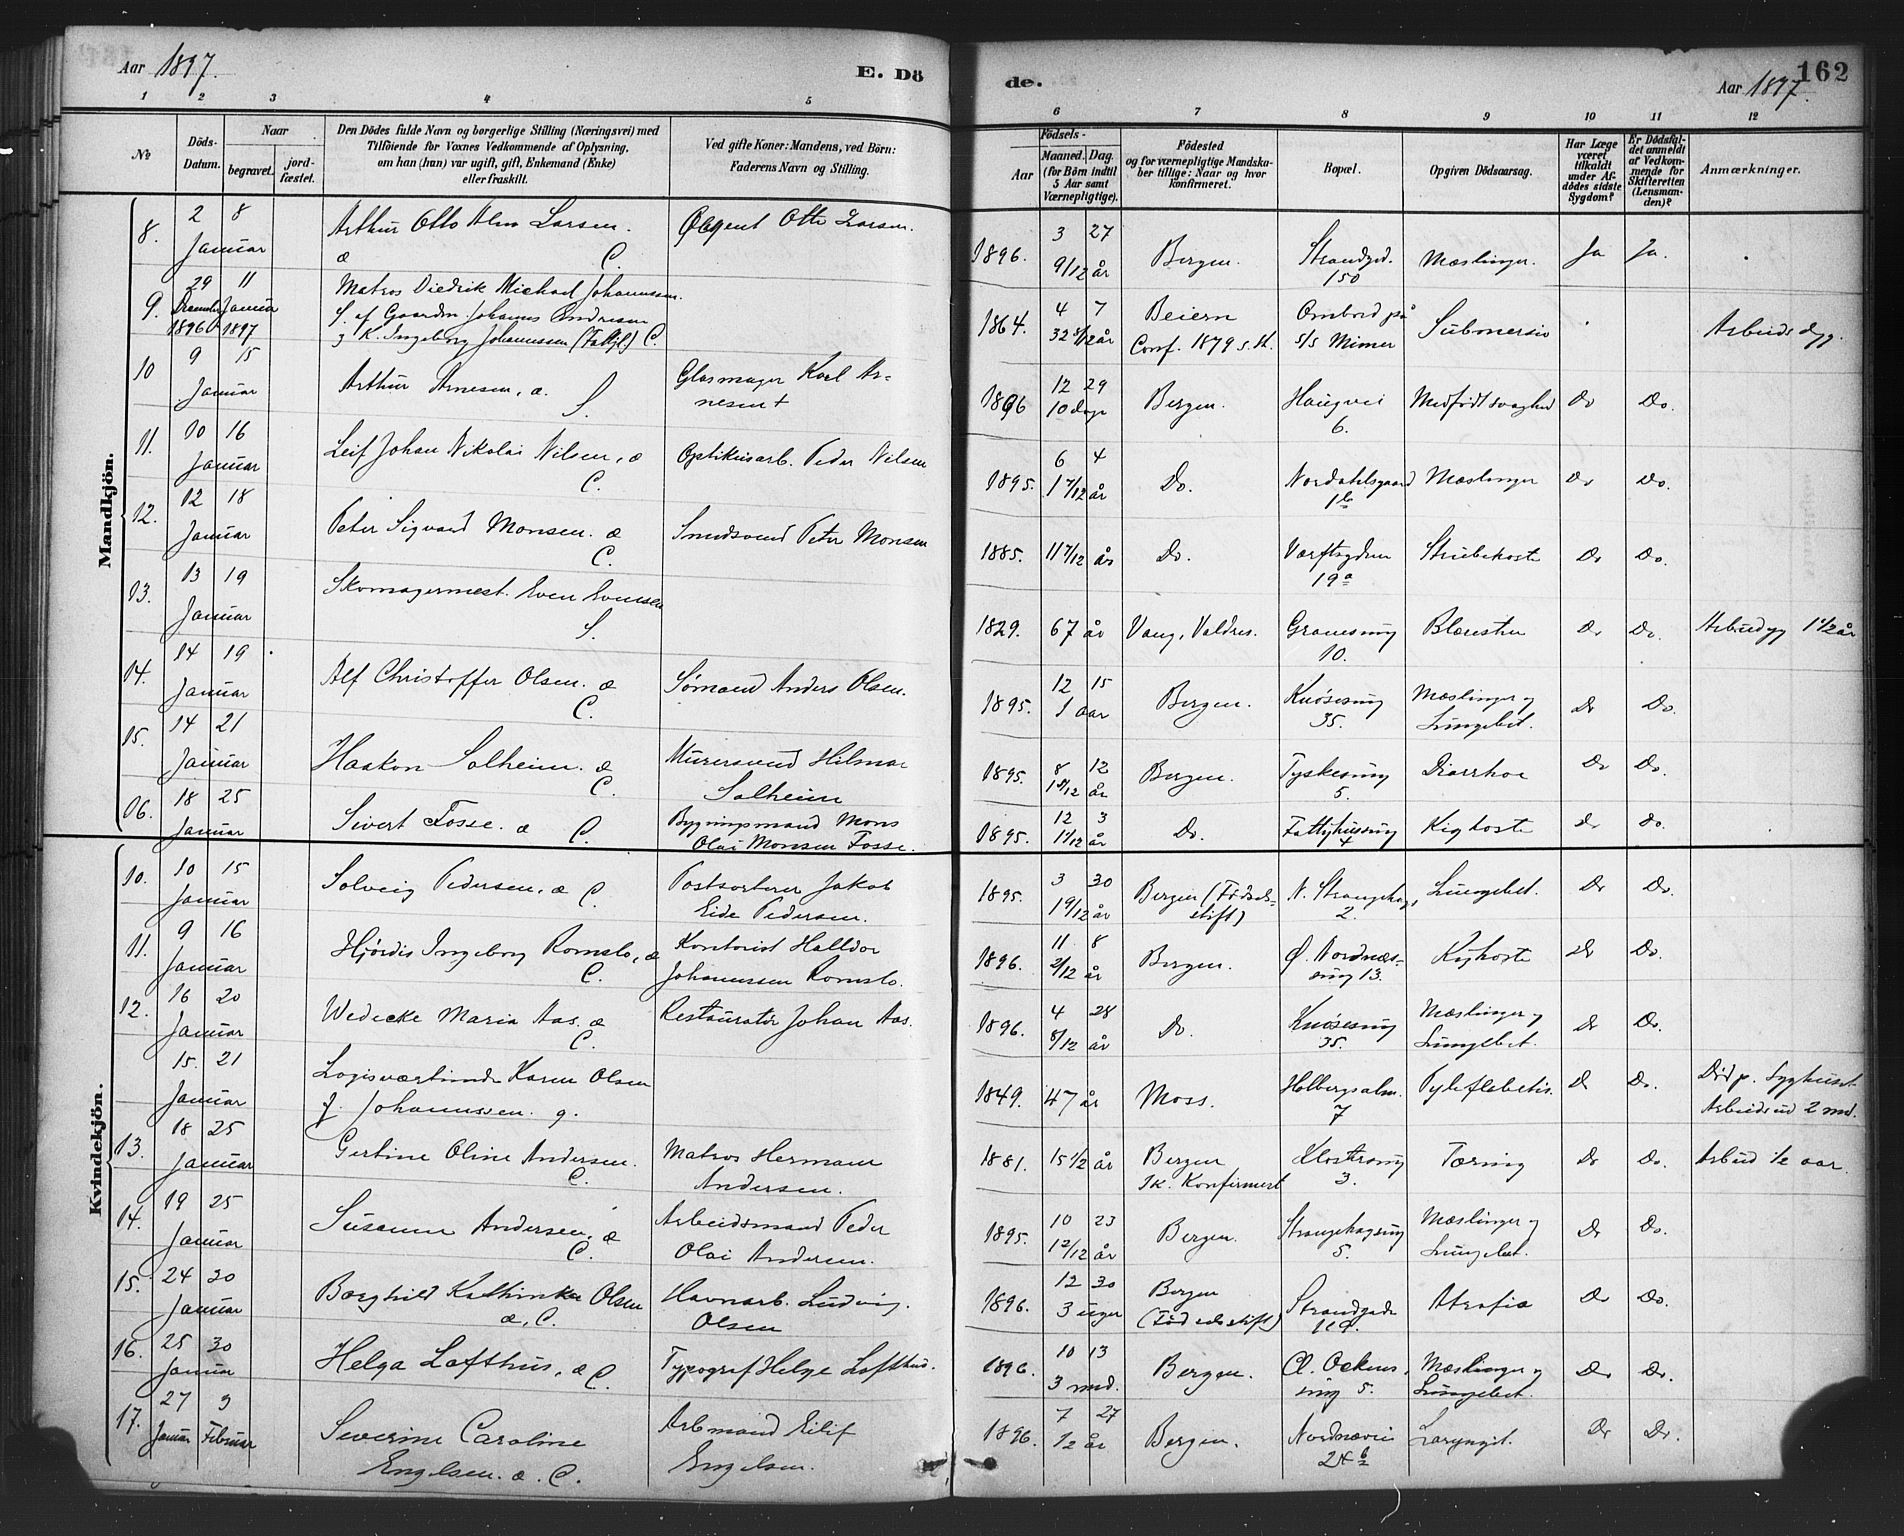 Aar 1897.
E. Dö
de.
Aar 1897.
162
1 2 3 4 5 6 7 8 9 10 11 12
No
Döds-Datum.
Naar
begravet.
jord-fæstet.
Den Dödes fulde Navn og borgerlige Stilling (Næringsvei) med
Tilföiende for Voxnes Vedkommende af Oplysning,
om han (hun) var ugift, gift, Enkemand (Enke)
eller fraskilt.
Ved gifte Koner: Mandens, ved Börn:
Faderens Navn og Stilling.
Födsels-
Aar
Maaned. Dag.
(for Börn indtil
5 Aar samt
Værnepligtige).
Födested
og for værnepligtige Mandska-
ber tillige: Naar og hvor
konfirmeret.
Bopæl.
Opgiven Dödsaarsag.
Har Læge
været
tilkaldt
under Af-
dödes sidste
Sygdom?
Er Dødsfal-
det anmeldt
af Vedkom-
mende for
Skifteretten
(Lensman-
den)?
Anmærkninger.
Mandkjön.
8. 2 8 Januar Arthur Otto Alm Larsen. æ C. Otto Larsen. 1896. 3 27 9/12 år Bergen. Strandgd. 150 Mæslinger. Ja Ja.
9. 29 December 1896 11 Januar 1897 Matros Diedrik Michael Johannssen.
S. af Gaardm. Johannes Andreasen
g K. Ingeborg Johannessen C. 1864. 4 7 32 8/12 år Beiern Conf. 1879 s. st. Ombord på S/S Mimer Submersio Arbeidsdyg.
10 9 15 Januar Arthur Arnesen, æ. S. Glasmager Karl Ar-
nesen + 1896 12 29 10 dage Bergen. Haugvei 6. Medfödt svaghed Do Do.
11. 10 16 Januar Leif Johan Nikolai Nilsen, æ C. Optikusarb. Peder Nilsen 1895. 6 4 1 7/12 år Do. Nordahlsgaard 1b Mæslinger Do Do.
12. 12 18 Januar Peter Sigvard Monsen. æ C. Smedsvend Peter Monsen 1885. 11 7/12 år Do. Værftsgaden 19a Strubehoste Do Do.
13. 13 19 Januar Skomagermest. Even Evensen S. 1829. 67 år Vang, Valdres. 10. Do Do. Arbudyg 1 1/2 år
14. 14 19 Januar Alf Christoffer Olsen. æ C. Sømand Anders Olsen. 1895. 12 15 1 aar Bergen. Knøsesmug 35. Mæslinger og Lungebet. Do Do.
15. 14 21 Januar Haakon Solheim. æ C. Murersvend Hilmar
Solheim 1895. 8 12 Bergen. Tyskesmug 5. Diarrhoe Do Do.
16. 18 25 Januar Sivert Fosse. æ C. Bygningsmand Mons
Olai Monsen Fosse. 1895. 12 3 1 1/12 år Do. Fattighussmug 4 Kighoste Do Do.
Kvindekjön.
10. 10 15 Januar Solveig Pedersen, æ C. Postsorterer Jakob
Eide Pedersen. 1895. 3 30 1 9/12 år Bergen (Fødsels-
stift) N. Strangehag, 2. Lungebet. Do Do.
11. 9 16 Januar Hjørdis Ingeborg Romslo, æ C. Kontorist Halldor
Johannessen Romslo. 1896. 11 8 2/12 år Bergen. Ø. Nordnæs-
smug 13. Kighoste Do Do.
12. 16 20 Januar Wedecke Maria Aas. æ C. Restauratör Johan Aas. 1896. 4 28 8/12 år Do. Knøsesmug 35. Mæslinger og Lungebet. Do Do.
15. 21 Januar Logisværtinde Karen Olsen
f. Johannessen. g. 1849. 47 år Moss. Holbergsalm. 7 Pyleflebitis. Do Do. Død p. Syghuset
Arbeidsud 2 md.
13. 18 25 Januar Gertine Oline Andersen. C. Matros Herman
Andersen. 1881. 15 1/2 år Bergen
Ik. Konfirmert Klostersmug 3. Tæring Do Do. Arbud 1/2 aar.
14. 19 25 Januar Susanne Andersen. æ C. Arbeidsmand Peder
Olai Andersen. 1895. 10 23 1 2/12 år Bergen. Strangehagsmug 5. Mæslinger og Lungebet. Do Do.
15. 24 30 Januar Borghild Kathinka Olsen
æ, C. Havnarb. Ludvig
Olsen 1896. 12 30 3 uger Bergen
(Fødselsstift) Strandgade 119. Atrofia Do Do.
16. 25 30 Januar Helga Lofthus, æ C. Typograf Helge Lofthus. 1896. 10 13 3 md. Bergen. Cl. Ockens
smug 5. Mæslinger og Lungebet. Do Do.
17. 27 Januar 3 Februar Severine Caroline
Engelsen. æ. C. Arbmand Eilif
Engelsen. 1896. 7 27 1/2 år Bergen. Nordnæsvei 24b Laryngit. Do Do.